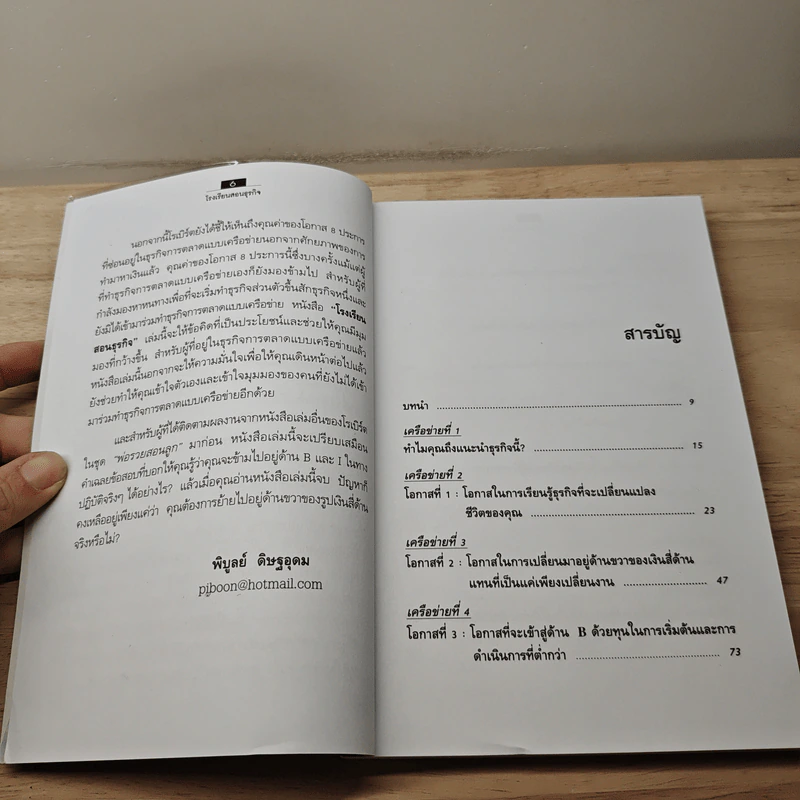 6
โรงเรียนสอนธุรกิจ
นอกจากนี้โรเบิร์ตยังได้ชี้ให้เห็นถึงคุณค่าของโอกาส 8 ประการ
ที่ซ่อนอยู่ในธุรกิจการตลาดแบบเครือข่ายนอกจากศักยภาพของการ
ทำมาหาเงินแล้ว คุณค่าของโอกาส 8 ประการนี้ซึ่งบางครั้งแม้แต่ผู้
ที่ทำธุรกิจการตลาดแบบเครือข่ายเองก็ยังมองข้ามไป สำหรับผู้ที่
กำลังมองหาหนทางเพื่อที่จะเริ่มทำธุรกิจส่วนตัวขึ้นสักธุรกิจหนึ่งและ
ยังมิได้เข้ามาร่วมทำธุรกิจการตลาดแบบเครือข่าย หนังสือ "โรงเรียน
สอนธุรกิจ" เล่มนี้จะให้ข้อคิดที่เป็นประโยชน์และช่วยให้คุณมีมุม
มองที่กว้างขึ้น สำหรับผู้ที่อยู่ในธุรกิจการตลาดแบบเครือข่ายแล้ว
หนังสือเล่มนี้นอกจากจะให้ความมั่นใจเพื่อให้คุณเดินหน้าต่อไปแล้ว
ยังช่วยทำให้คุณเข้าใจตัวเองและเข้าใจมุมมองของคนที่ยังไม่ได้เข้า
มาร่วมทำธุรกิจการตลาดแบบเครือข่ายอีกด้วย
และสำหรับผู้ที่ได้ติดตามผลงานจากหนังสือเล่มอื่นของโรเบิร์ต
ในชุด "พ่อรวยสอนลูก" มาก่อน หนังสือเล่มนี้จะเปรียบเสมือน
คำเฉลยข้อสอบที่บอกให้คุณรู้ว่าคุณจะข้ามไปอยู่ด้าน B และ I ในทาง
ปฏิบัติจริงๆ ได้อย่างไร? แล้วเมื่อคุณอ่านหนังสือเล่มนี้จบ ปัญหาก็
คงเหลืออยู่เพียงแค่ว่า คุณต้องการย้ายไปอยู่ด้านขวาของรูปเงินสี่ด้าน
จริงหรือไม่?
พิบูลย์ ดิษฐอุดม
piboon@hotmail.com
สารบัญ
บทนำ ........................................ 9
เครือข่ายที่ 1
ทำไมคุณถึงแนะนำธุรกิจนี้? ........................................ 15
เครือข่ายที่ 2
โอกาสที่ 1 : โอกาสในการเรียนรู้ธุรกิจที่จะเปลี่ยนแปลง
ชีวิตของคุณ ........................................ 23
เครือข่ายที่ 3
โอกาสที่ 2 : โอกาสในการเปลี่ยนมาอยู่ด้านขวาของเงินสี่ด้าน
แทนที่เป็นแค่เพียงเปลี่ยนงาน ........................................ 47
เครือข่ายที่ 4
โอกาสที่ 3 : โอกาสที่จะเข้าสู่ด้าน B ด้วยทุนในการเริ่มต้นและการ
ดำเนินการที่ต่ำกว่า ........................................ 73